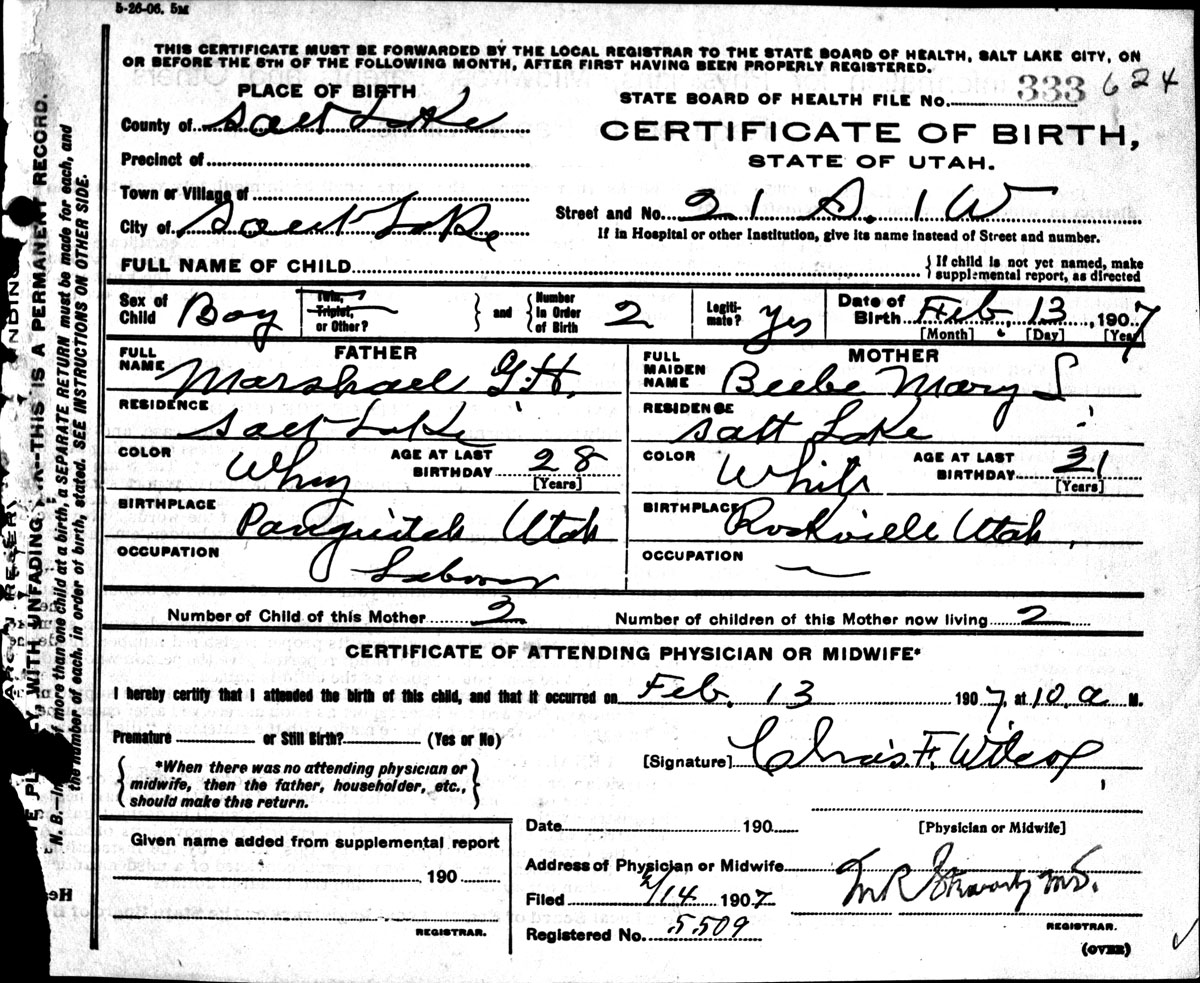 5-26-06. 5M
THIS CERTIFICATE MUST BE FORWARDED BY THE LOCAL REGISTRAR TO THE STATE BOARD OF HEALTH, SALT LAKE CITY, ON
OR BEFORE THE 5TH OF THE FOLLOWING MONTH, AFTER FIRST HAVING BEEN PROPERLY REGISTERED.
PLACE OF BIRTH
STATE BOARD OF HEALTH FILE NO. 333 624
County of Salt Lake
CERTIFICATE OF BIRTH,
STATE OF UTAH.
Precinct of
Town or Village of
City of Salt Lake
Street and No. 21 S. 1 W
If in Hospital or other Institution, give its name instead of Street and number.
FULL NAME OF CHILD
{ If child is not yet named, make
supplemental report, as directed
Sex of Child Boy
Twin, Triplet, or Other? } and { Number in Order of Birth 2
Legiti-mate? Yes
Date of Birth Feb. 13, 1907
[Month] [Day] [Year]
FATHER
FULL NAME Marshall G. H.
RESIDENCE Salt Lake
COLOR
AGE AT LAST BIRTHDAY 28
[Years]
BIRTHPLACE Panguitch Utah
OCCUPATION Laborer
MOTHER
FULL MAIDEN NAME Beebe Mary L
RESIDENCE Salt Lake
COLOR White
AGE AT LAST BIRTHDAY 21
[Years]
BIRTHPLACE Rockville Utah
OCCUPATION
Number of Child of this Mother 2
Number of children of this Mother now living 2
CERTIFICATE OF ATTENDING PHYSICIAN OR MIDWIFE*
I hereby certify that I attended the birth of this child, and that it occurred on Feb. 13 1907, at 10. a M.
Premature or Still Birth? (Yes or No)
[Signature] Chas. F. Wilcox
{ *When there was no attending physician or
midwife, then the father, householder, etc.,
should make this return. }
Date 190
[Physician or Midwife]
Given name added from supplemental report
190
REGISTRAR.
Address of Physician or Midwife
Filed 2/14 1907
M R Stewart M.D.
REGISTRAR.
Registered No. 5509
(OVER)
WITH UNFADING INK—THIS IS A PERMANENT RECORD.
N. B.—In of more than one child at a birth, a SEPARATE RETURN must be made for each, and
the number of each, in order of birth, stated. SEE INSTRUCTIONS ON OTHER SIDE.